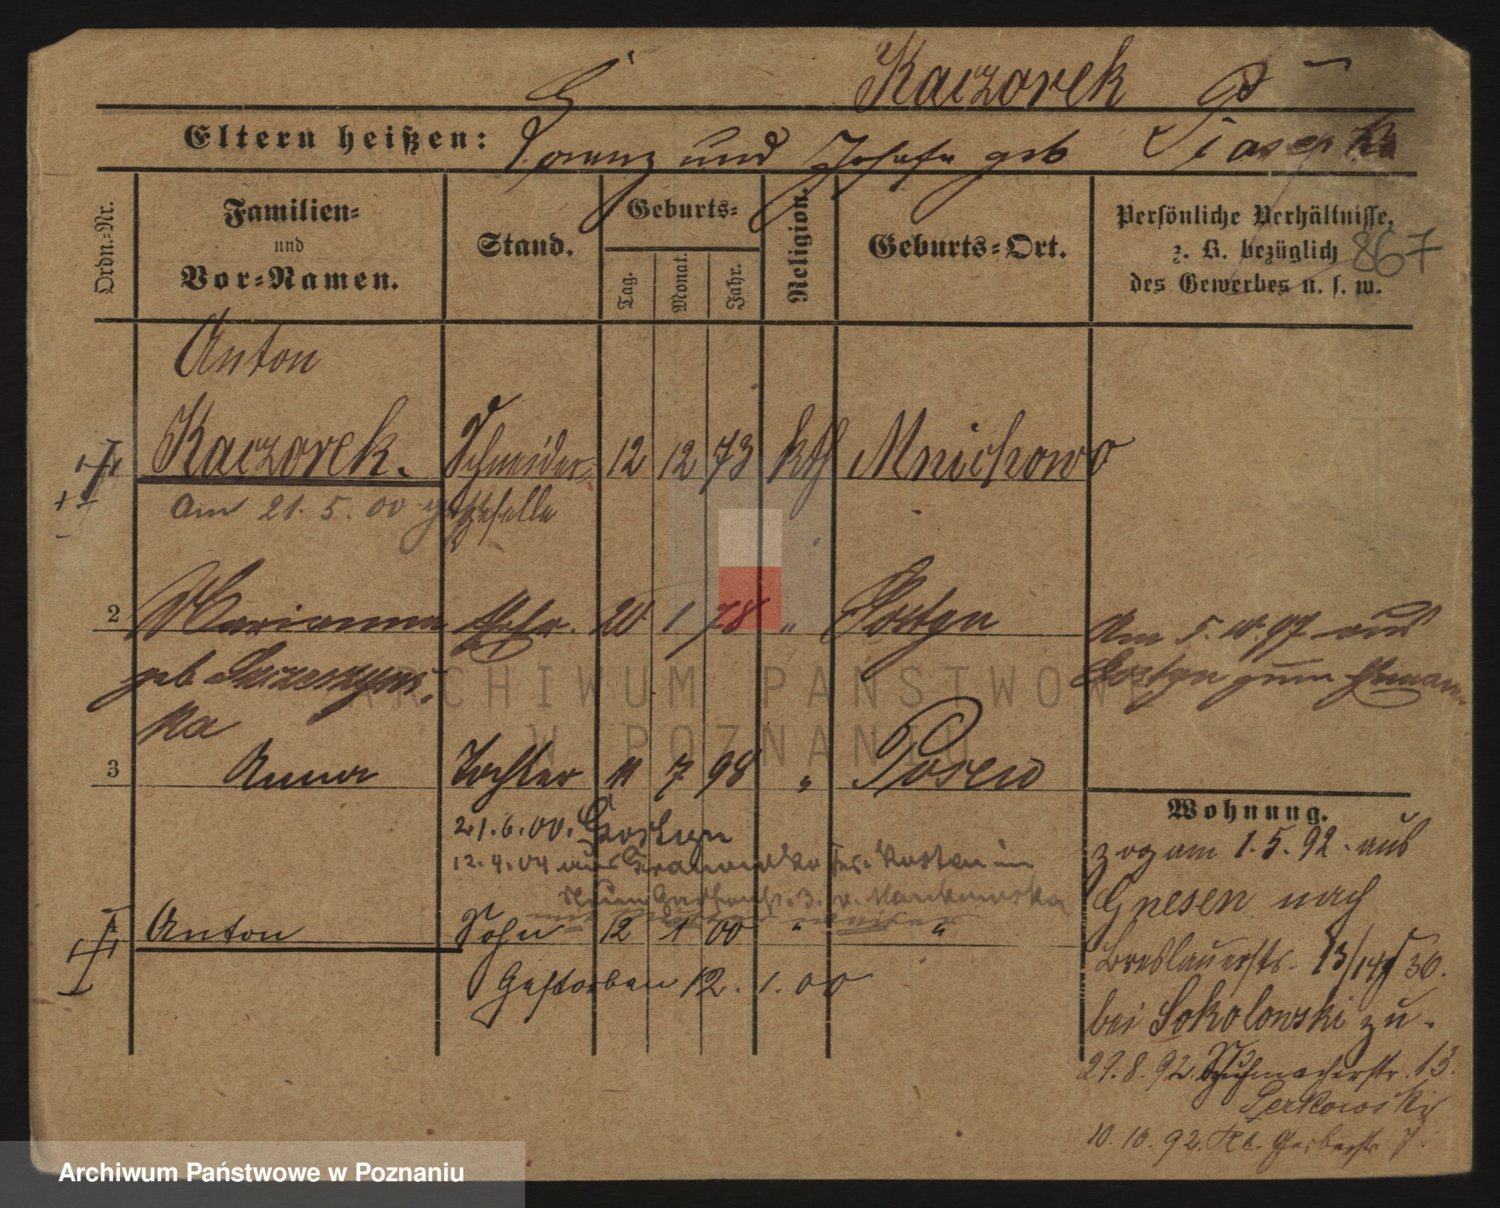 Kaczorek
Eltern heißen: Lorenz und Josefa geb Piasecka
Ordn.-Nr.
Familien-
und
Vor-Namen.
Stand.
Geburts-
Tag.
Monat.
Jahr.
Religion.
Geburts-Ort.
Persönliche Verhältnisse,
z. B. bezüglich
des Gewerbes u. s. w.
867
Anton
Kaczorek. Schneider 12 12 73 kth Mnichowo
Am 21. 5. 00 geselle
2 Marianna Ehefr. 20 1 78 " Gostyn
geb
ka
Am 5. 11. 97 aus
Gostyn zum
3 Anna Tochter 11 7 98 " Posen
21.6.00. Gostyn
12.4.04 aus
4 Anton Sohn 12 1 00 " "
Gestorben 12. 1. 00
Wohnung.
zog am 1. 5. 92. aus
Gnesen nach
Breslauerstr. 13/14 36.
bei Sokolowski zu.
29. 8. 92. Schuhmacherstr. 13.
Serkowski
10. 10. 92. Kl. Gerberstr 7
ARCHIWUM PAŃSTWOWE
W POZNANIU
Archiwum Państwowe w Poznaniu